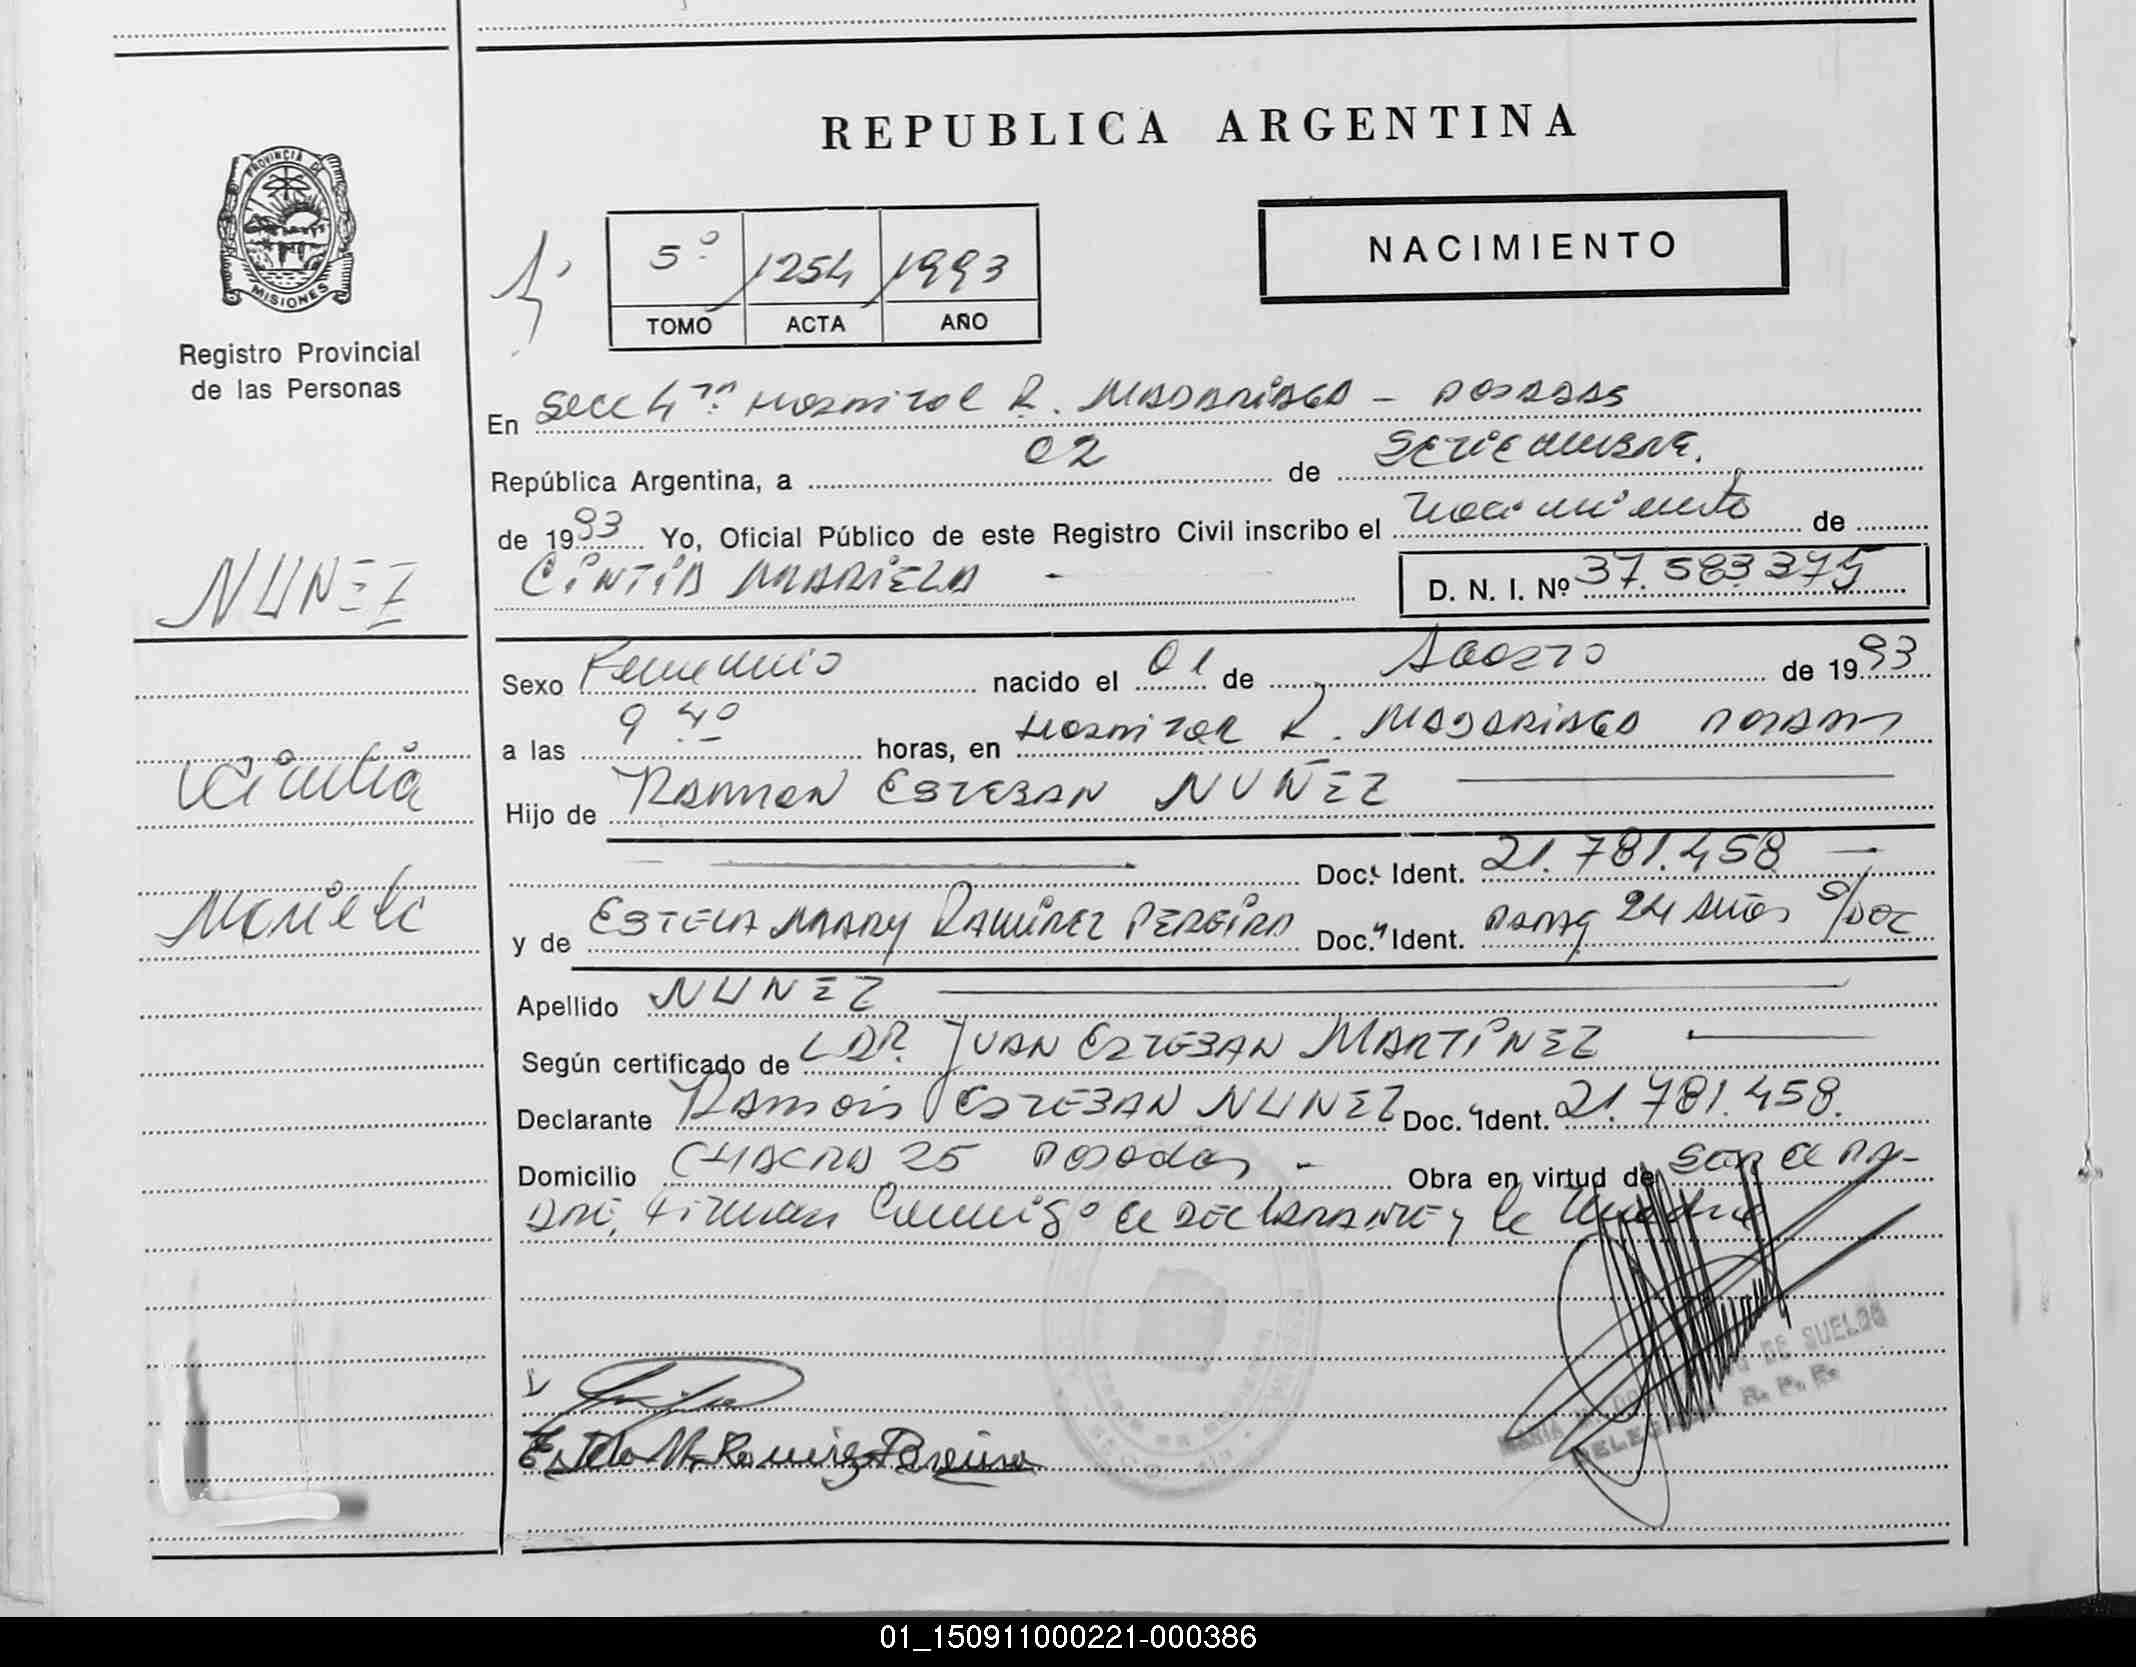 REPUBLICA ARGENTINA
PROVINCIA DE
MISIONES
Registro Provincial
de las Personas
5º 1254 1993
TOMO ACTA AÑO
NACIMIENTO
En Secc 4ta Hospital R. MADARIAGA - POSADAS
República Argentina, a 02 de SETIEMBRE.
de 1993 Yo, Oficial Público de este Registro Civil inscribo el nacimiento de
CINTIA MARIELA - D. N. I. Nº 37.583.375
NUNEZ
Sexo Femenino nacido el 01 de AGOSTO de 1993
a las 9 40 horas, en HOSPITAL R. MADARIAGA POSADAS
Cintia
Hijo de RAMON ESTEBAN NUÑEZ
Doc. Ident. 21.781.458 —
Mariela
y de ESTELA MARY RAMIREZ PEREIRA Doc. Ident. 24 AÑOS S/DOC
Apellido NUNEZ
Según certificado de DR. JUAN ESTEBAN MARTINEZ
Declarante RAMON ESTEBAN NUNEZ Doc. Ident. 21.781.458.
Domicilio CHACRA 25 Posadas - Obra en virtud de ser el PA-
DRE, Firman Conmigo el DECLARANTE y la Madre
Estela M. Ramirez Pereira
DE SUELDO
R. P. P.
01_150911000221-000386